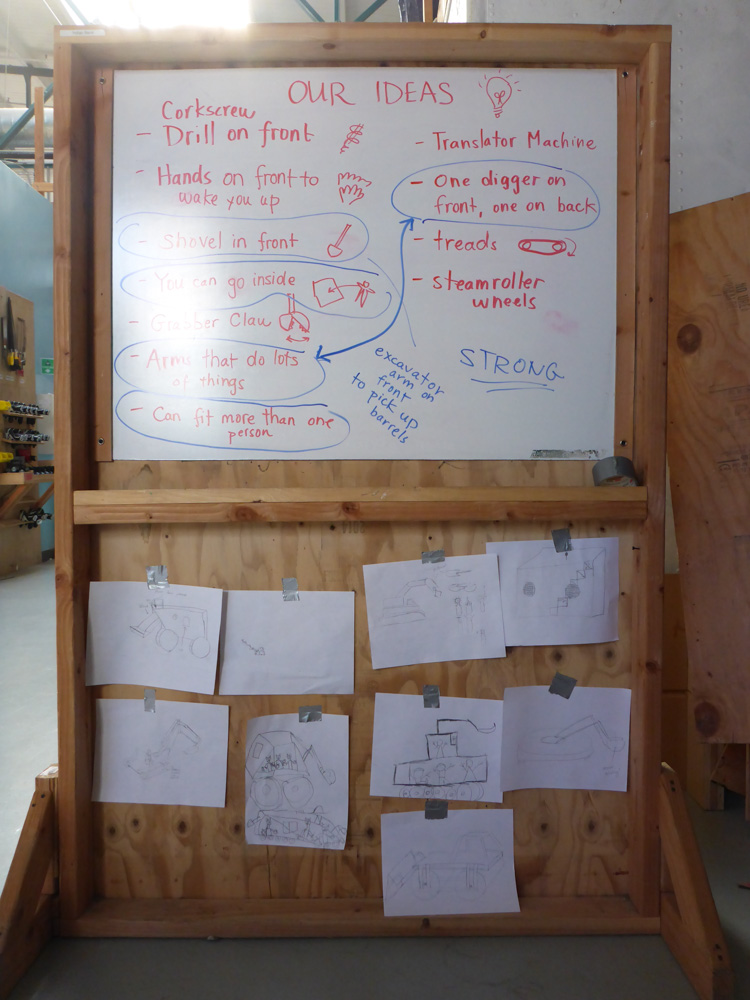 OUR IDEAS
Corkscrew
- Drill on front
- Hands on front to
wake you up
- Shovel in front
- You can go inside
- Grabber Claw
- Arms that do lots
of things
- Can fit more than one
person
- Translator Machine
- One digger on
front, one on back
- treads
- steamroller
wheels
STRONG
excavator
arm on
front
to pick up
barrels